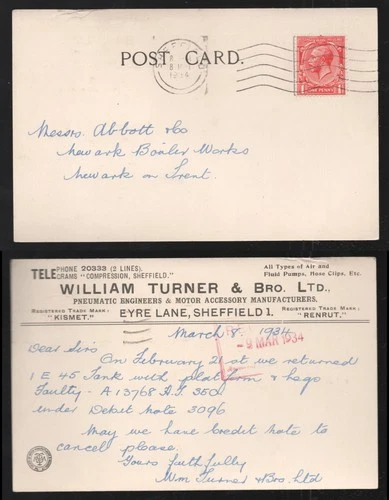 POST CARD.
SHEFFIELD
ONE PENNY
Messrs. Abbott & Co
Newark Boiler Works
Newark on Trent.
TELE PHONE 20333 (2 LINES).
GRAMS "COMPRESSION, SHEFFIELD."
All Types of Air and
Fluid Pumps, Hose Clips, Etc.
WILLIAM TURNER & BRO. LTD.,
PNEUMATIC ENGINEERS & MOTOR ACCESSORY MANUFACTURERS.
REGISTERED TRADE MARK: "KISMET."
EYRE LANE, SHEFFIELD 1.
REGISTERED TRADE MARK: "RENRUT."
March 8. 1934
-9 MAR 1934
Dear Sirs
On February 21st we returned
1 E 45 Tank with platform & legs
Faulty - A 13768 A.P. 350
under Debit Note 3096
May we have Credit Note to
cancel please.
Yours faithfully
Wm Turner & Bro. Ltd